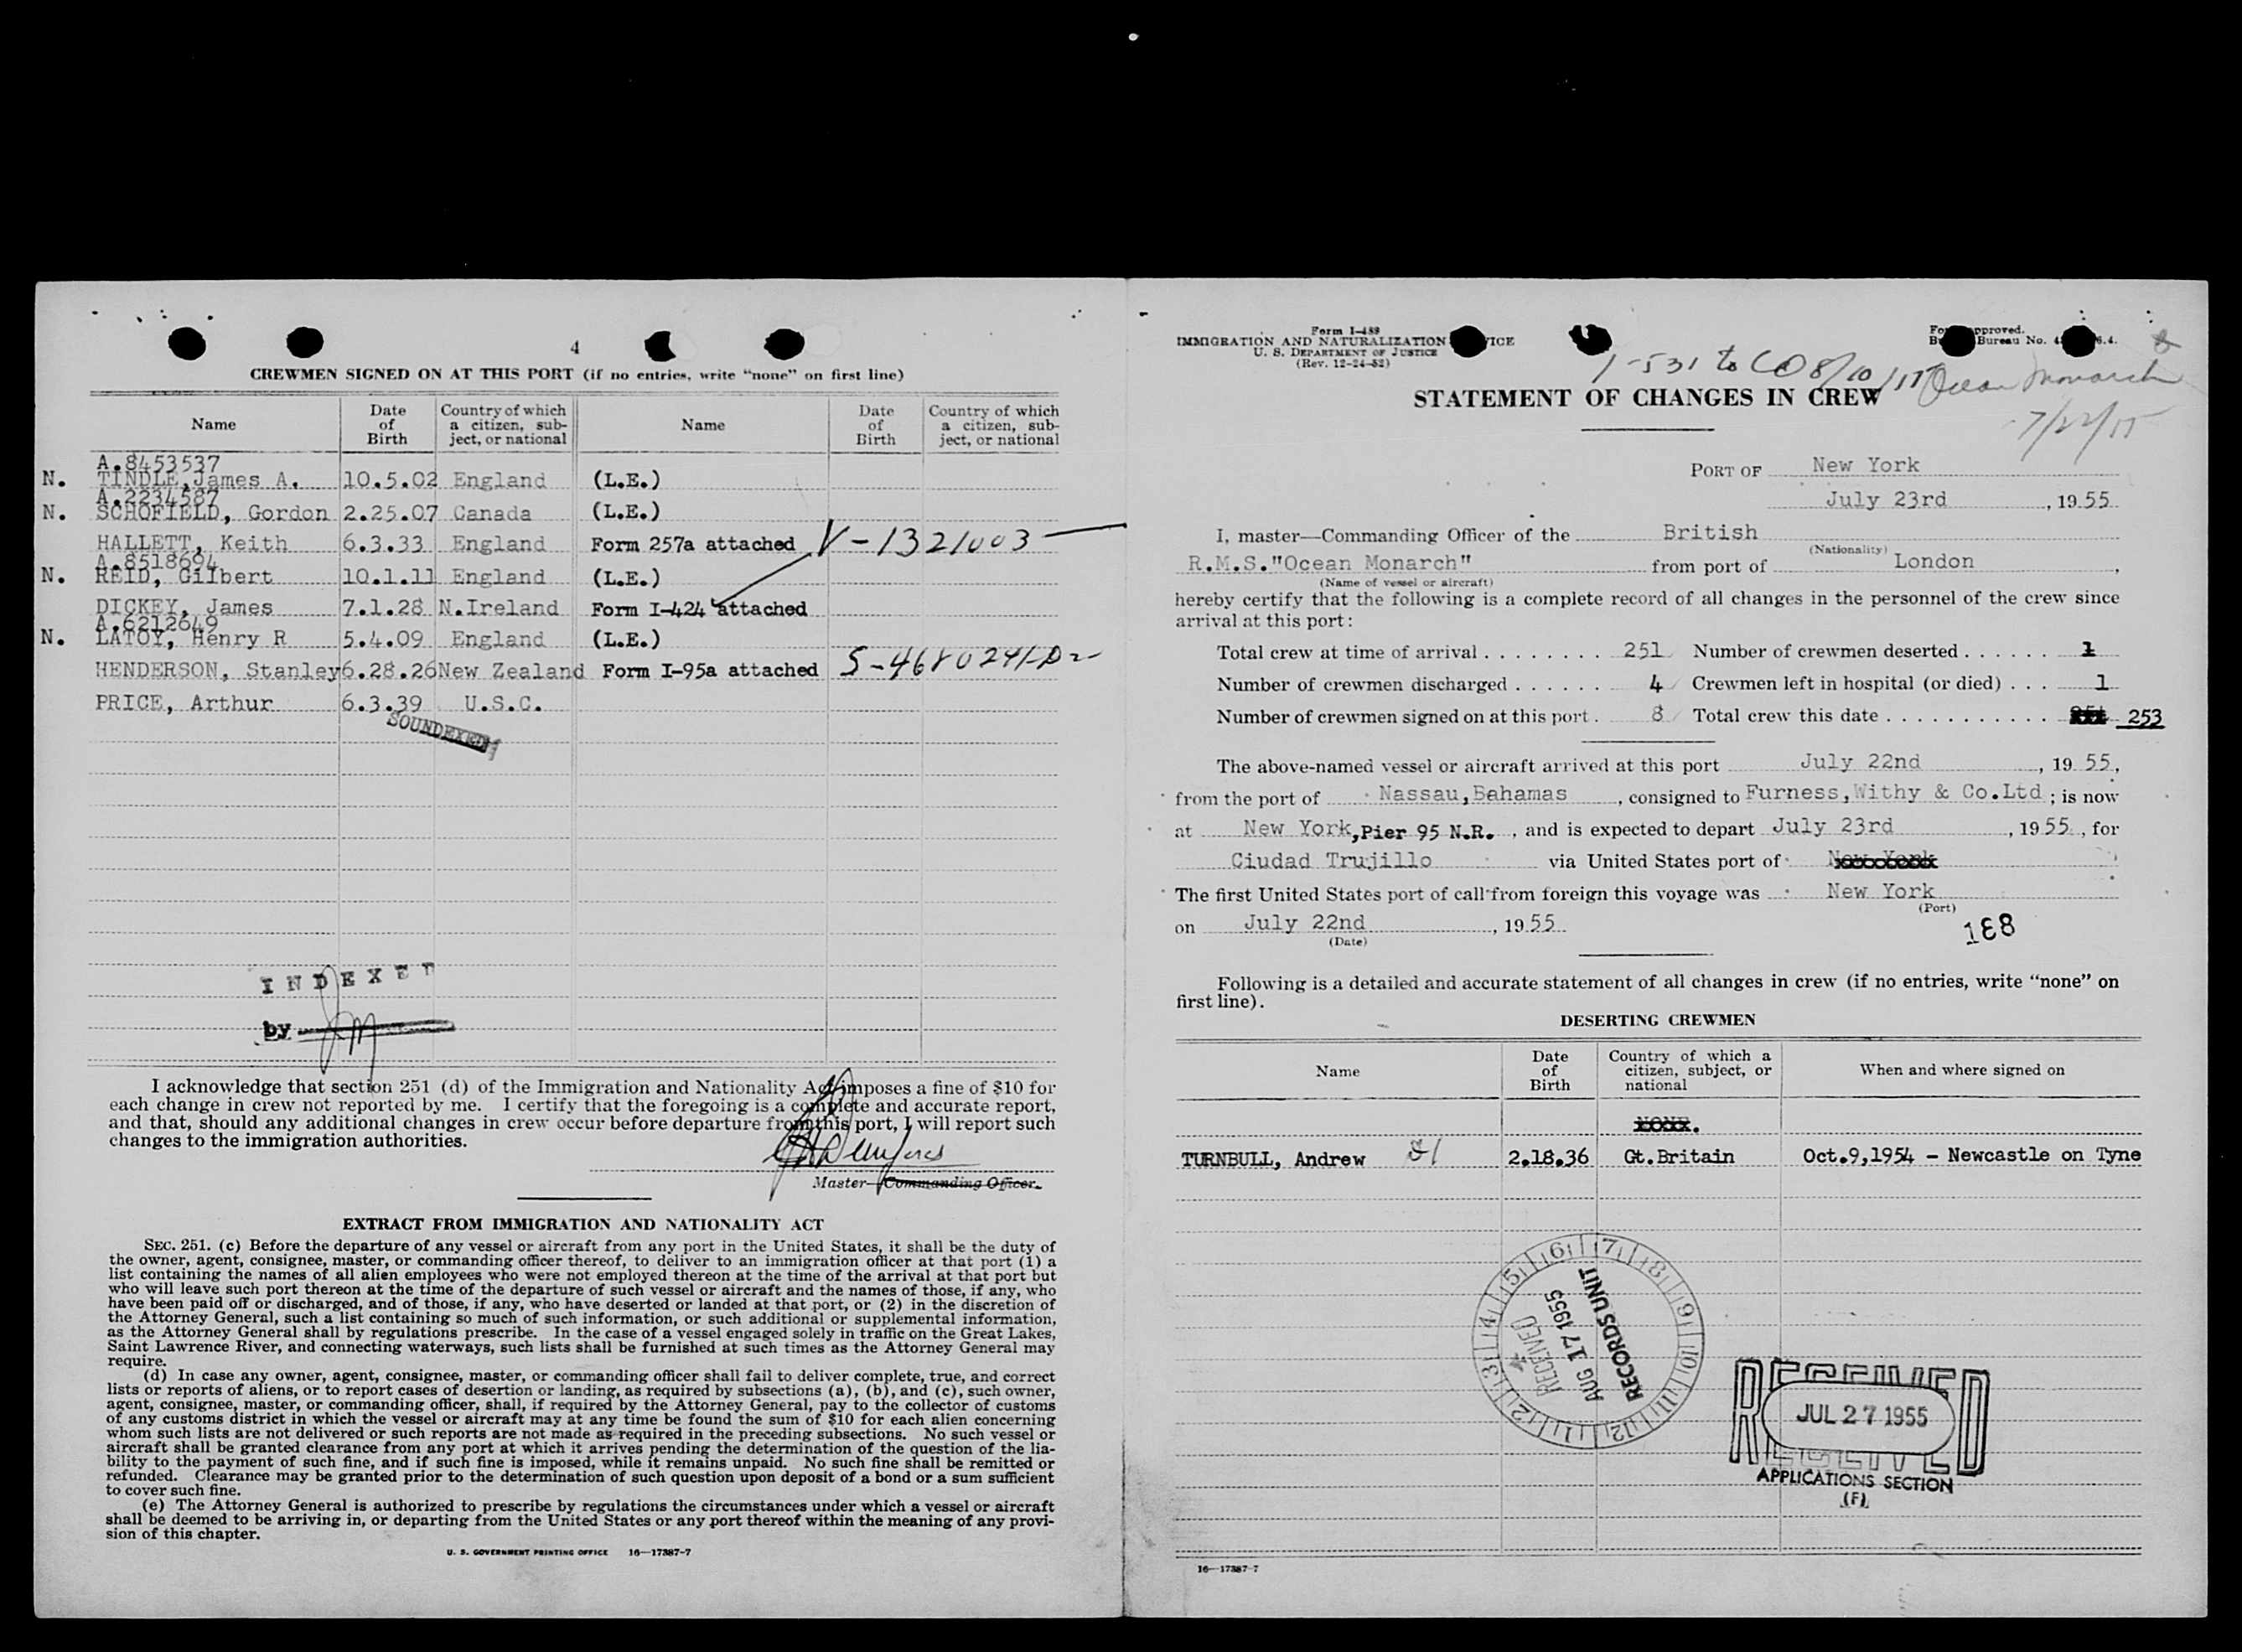 4
CREWMEN SIGNED ON AT THIS PORT (if no entries, write “none” on first line)
Name | Date of Birth | Country of which a citizen, subject, or national | Name | Date of Birth | Country of which a citizen, subject, or national
A.8453537
N. TINDLE, James A. 10.5.02 England (L.E.)
A.2234587
N. SCHOFIELD, Gordon 2.25.07 Canada (L.E.)
HALLETT, Keith 6.3.33 England Form 257a attached V-1321003
A.8518694
N. REID, Gilbert 10.1.11 England (L.E.)
DICKEY, James 7.1.28 N.Ireland Form I-424 attached
A.6212649
N. LATOY, Henry R 5.4.09 England (L.E.)
HENDERSON, Stanley 6.28.26 New Zealand Form I-95a attached
PRICE, Arthur 6.3.39 U.S.C.
SOUNDEXED
INDEXED
by
I acknowledge that section 251 (d) of the Immigration and Nationality Act imposes a fine of $10 for
each change in crew not reported by me. I certify that the foregoing is a complete and accurate report,
and that, should any additional changes in crew occur before departure from this port, I will report such
changes to the immigration authorities.
Master—Commanding Officer.
EXTRACT FROM IMMIGRATION AND NATIONALITY ACT
SEC. 251. (c) Before the departure of any vessel or aircraft from any port in the United States, it shall be the duty of
the owner, agent, consignee, master, or commanding officer thereof, to deliver to an immigration officer at that port (1) a
list containing the names of all alien employees who were not employed thereon at the time of the arrival at that port but
who will leave such port thereon at the time of the departure of such vessel or aircraft and the names of those, if any, who
have been paid off or discharged, and of those, if any, who have deserted or landed at that port, or (2) in the discretion of
the Attorney General, such a list containing so much of such information, or such additional or supplemental information,
as the Attorney General shall by regulations prescribe. In the case of a vessel engaged solely in traffic on the Great Lakes,
Saint Lawrence River, and connecting waterways, such lists shall be furnished at such times as the Attorney General may
require.
(d) In case any owner, agent, consignee, master, or commanding officer shall fail to deliver complete, true, and correct
lists or reports of aliens, or to report cases of desertion or landing, as required by subsections (a), (b), and (c), such owner,
agent, consignee, master, or commanding officer, shall, if required by the Attorney General, pay to the collector of customs
of any customs district in which the vessel or aircraft may at any time be found the sum of $10 for each alien concerning
whom such lists are not delivered or such reports are not made as required in the preceding subsections. No such vessel or
aircraft shall be granted clearance from any port at which it arrives pending the determination of the question of the lia-
bility to the payment of such fine, and if such fine is imposed, while it remains unpaid. No such fine shall be remitted or
refunded. Clearance may be granted prior to the determination of such question upon deposit of a bond or a sum sufficient
to cover such fine.
(e) The Attorney General is authorized to prescribe by regulations the circumstances under which a vessel or aircraft
shall be deemed to be arriving in, or departing from the United States or any port thereof within the meaning of any provi-
sion of this chapter.
U. S. GOVERNMENT PRINTING OFFICE 16—17387-7
Form I-489
IMMIGRATION AND NATURALIZATION
U. S. DEPARTMENT OF JUSTICE
(Rev. 12-24-52)
Bureau No.
1-531 to CO 8/10/55 Ocean Monarch
7/22/55
STATEMENT OF CHANGES IN CREW
PORT OF New York
July 23rd, 1955
I, master—Commanding Officer of the British
(Nationality)
R.M.S."Ocean Monarch" from port of London,
(Name of vessel or aircraft)
hereby certify that the following is a complete record of all changes in the personnel of the crew since
arrival at this port:
Total crew at time of arrival . . . . . . . . 251 Number of crewmen deserted . . . . . . 1
Number of crewmen discharged . . . . . . 4 Crewmen left in hospital (or died) . . . 1
Number of crewmen signed on at this port . 8 Total crew this date . . . . . . . . . . . . 253
The above-named vessel or aircraft arrived at this port July 22nd, 1955,
from the port of Nassau, Bahamas, consigned to Furness, Withy & Co.Ltd; is now
at New York, Pier 95 N.R., and is expected to depart July 23rd, 1955, for
Ciudad Trujillo via United States port of New York
The first United States port of call from foreign this voyage was New York
(Port)
on July 22nd, 1955
(Date)
188
Following is a detailed and accurate statement of all changes in crew (if no entries, write “none” on
first line).
DESERTING CREWMEN
Name | Date of Birth | Country of which a citizen, subject, or national | When and where signed on
NONE.
TURNBULL, Andrew 2.18.36 Gt.Britain Oct.9,1954 - Newcastle on Tyne
1 2 3 4 5 6 7 8 9 10 11 12
RECEIVED
AUG 17 1955
RECORDS UNIT
RECEIVED
JUL 27 1955
RECEIVED
APPLICATIONS SECTION
(F)
16—17387-7